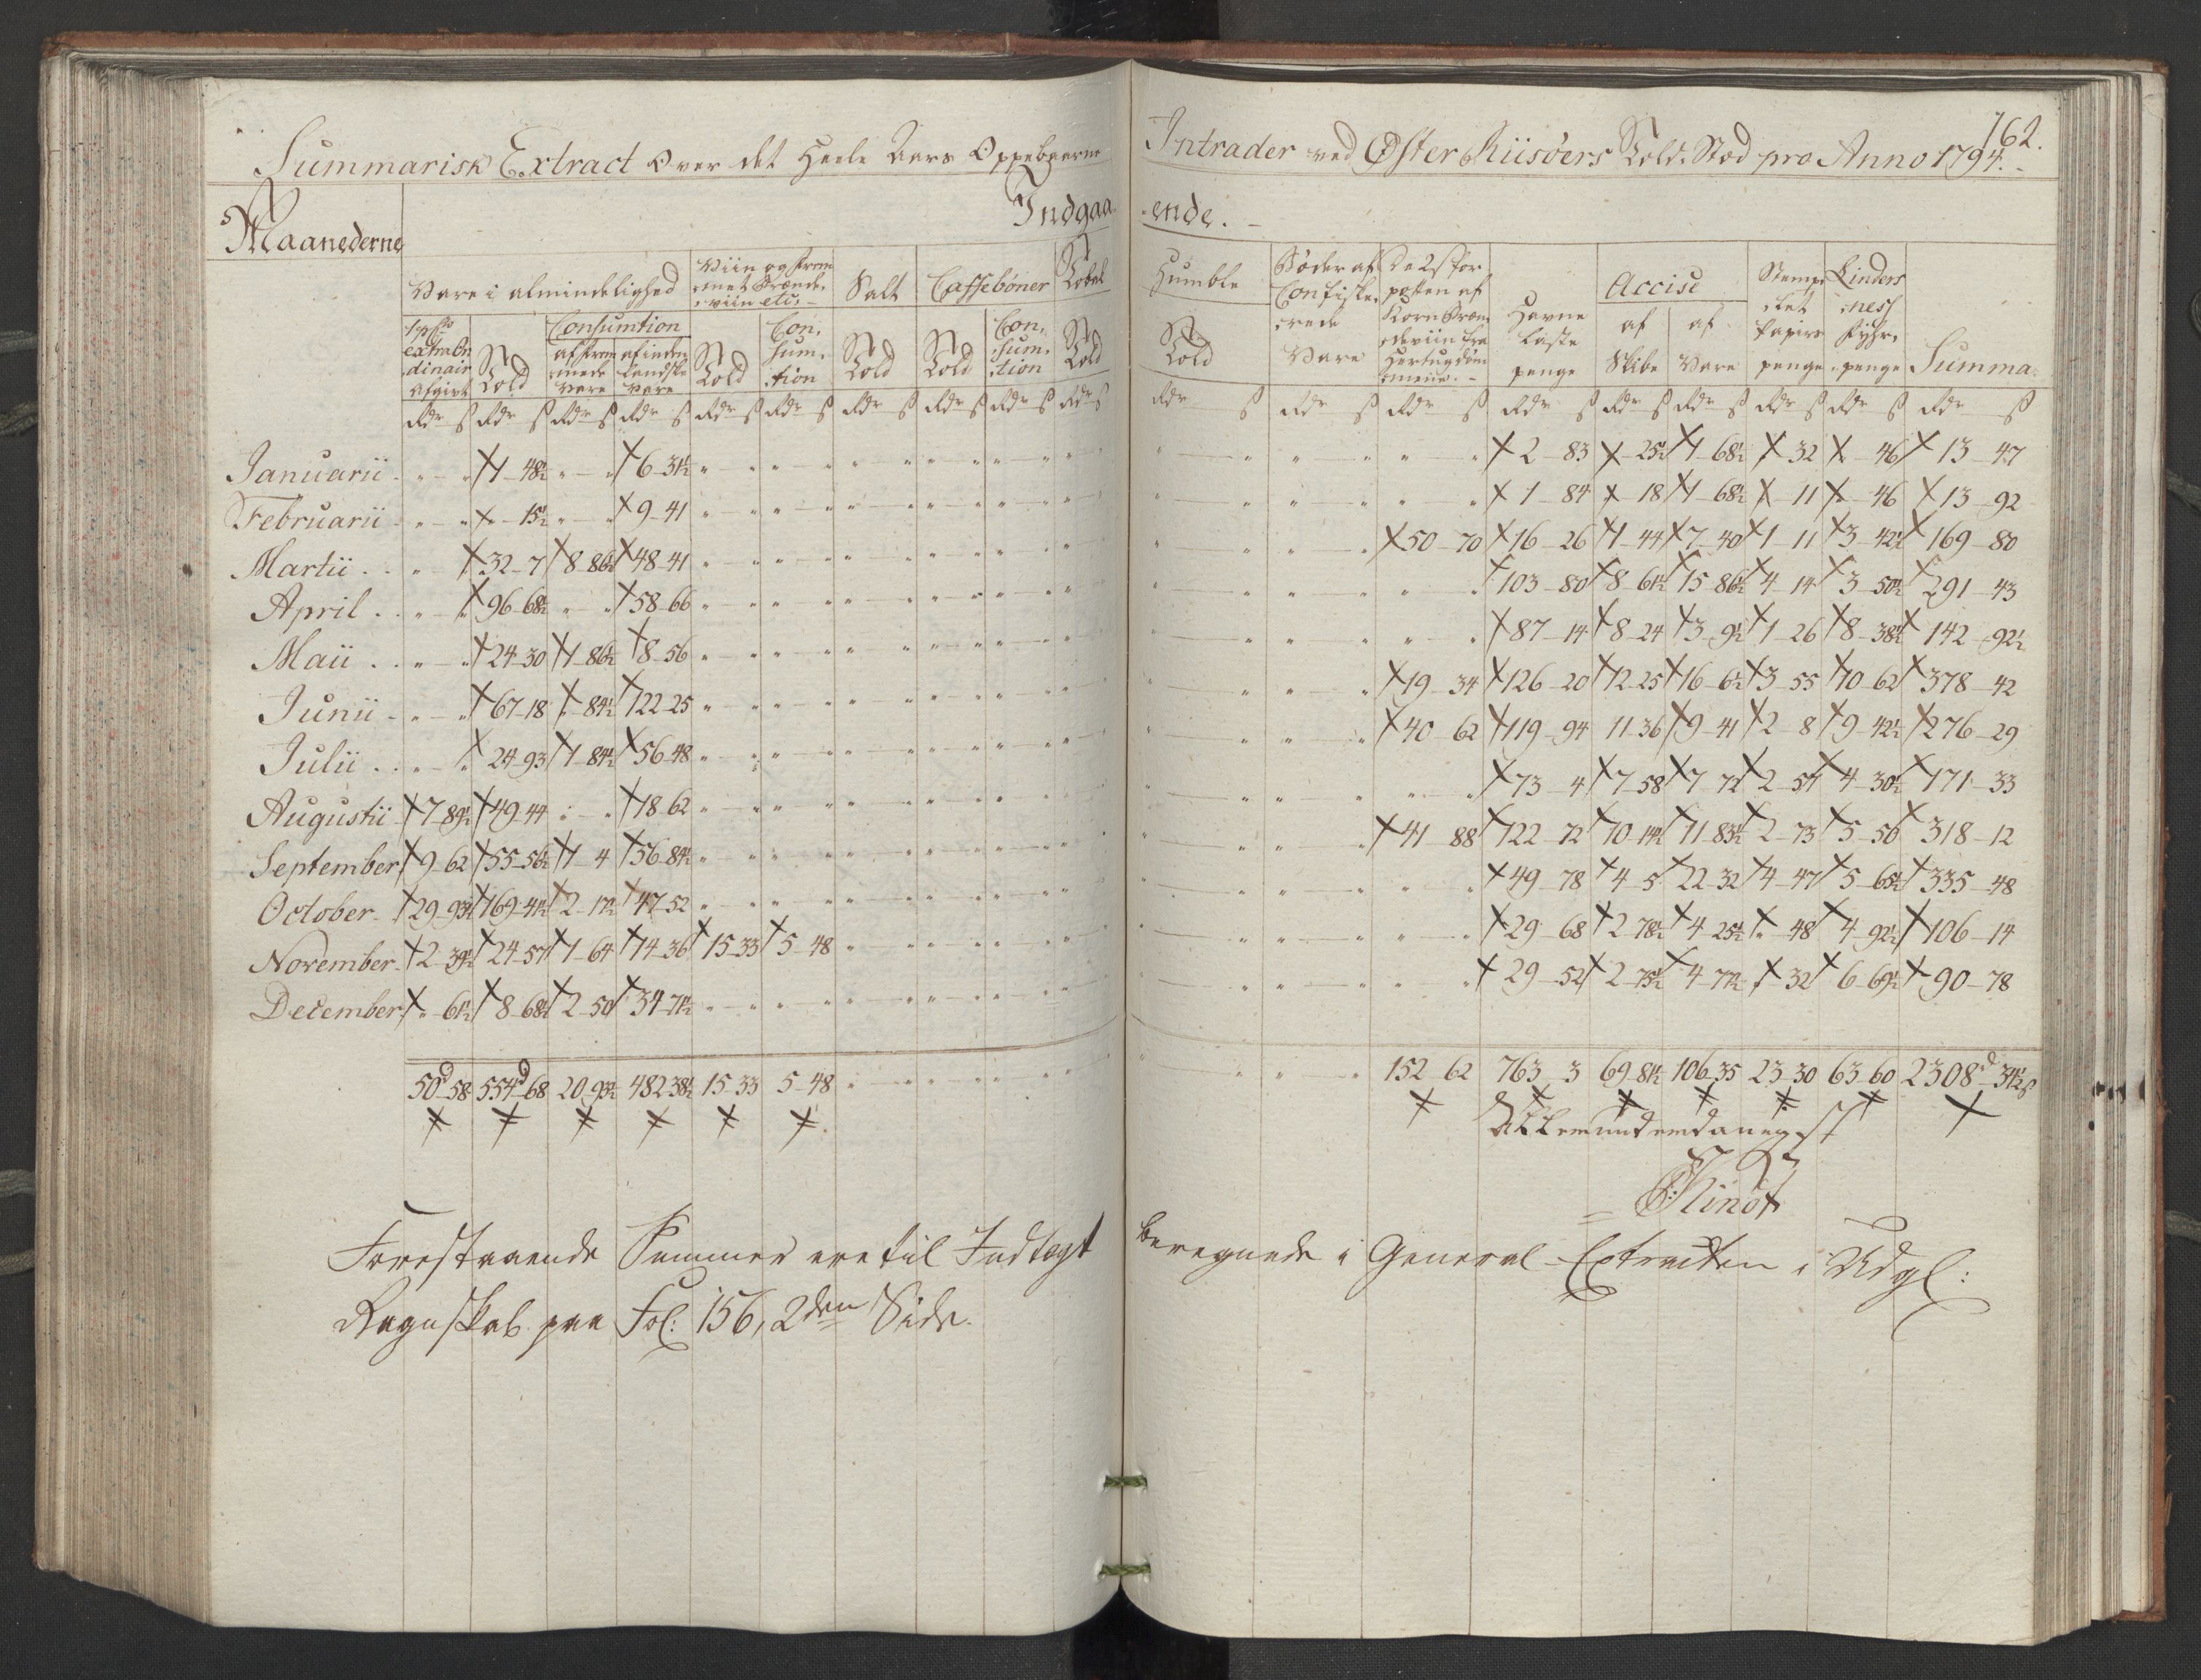 162.
Summarisk Extract over det Heele Aars Oppebaarne Intrader ved Øster Riisøers Told-Stod pro Anno 1794.
Maanederne Indgaa-ende.
Vare i almindelighed | Viin og frem-met Brænde-viin etc. | Salt | Caffebønner | Tobak | Humble | Bøder af Confiske-rede Vare | De 2 s for potten af Korn Bræn-deviin fra Hertugdøm-mene. | Havne Laste penge | Accise | Stemp-let Papiirs penge | Linders-ness Fyhr-penge | Summa
extraor-dinair Afgivt | Told | Consumtion af frem-mede Vare | af inden-landske Vare | Told | Con-sum-tion | Told | Told | Con-sum-tion | Told | Told | af Skibe | af Vare
Rdr ß Rdr ß Rdr ß Rdr ß Rdr ß Rdr ß Rdr ß Rdr ß Rdr ß Rdr ß Rdr ß Rdr ß Rdr ß Rdr ß Rdr ß Rdr ß Rdr ß Rdr ß Rdr ß
Januarii 1-48½ 6-31½ 2-83 25½ 1-68½ 32 46 13-47
Februarii 15½ 9-41 1-84 18 1-68½ 11 46 13-92
Martii 32-7 8-86½ 48-41 50-70 16-26 1-44 7-40 1-11 3-42½ 169-80
April 96-68½ 58-66 103-80 8-61½ 15-86½ 4-14 3-50½ 291-43
Maii 24-30 1-86½ 8-56 87-14 8-24 3-9½ 1-26 8-38½ 142-92½
Junii 67-18 84½ 122-25 19-34 126-20 12-25 16-6½ 3-55 10-62 378-42
Julii 24-93 1-84½ 56-48 40-62 119-94 11-36 9-41 2-8 9-42½ 276-29
Augustii 7-89½ 49-44 18-62 73-4 7-58 7-72 2-51 4-30½ 171-33
September 9-62 55-56½ 1-4 56-84½ 41-88 122-72 10-14½ 11-83½ 2-73 5-50 318-12
October 29-93½ 169-41½ 2-17½ 47-52 49-78 4-5 22-32 4-47 5-65½ 335-48
November 2-39½ 24-57 1-64 14-36 15-33 5-48 29-68 2-78½ 4-25½ 48 4-92½ 106-14
December 61½ 8-68½ 2-50 34-71½ 29-52 2-75½ 4-71½ 32 6-69½ 90-78
50d-58 554d-68 20-93½ 482-38½ 15-33 5-48 152-62 763-3 69-81½ 106-35 23-30 63-60 2308d-31½ß
Allerunderdanigst
Kinot
Forestaaende Summer ere til Indtægt beregnede i General-Extracten i Udgl:
Regnskab paa Fol: 156, 2den Side.